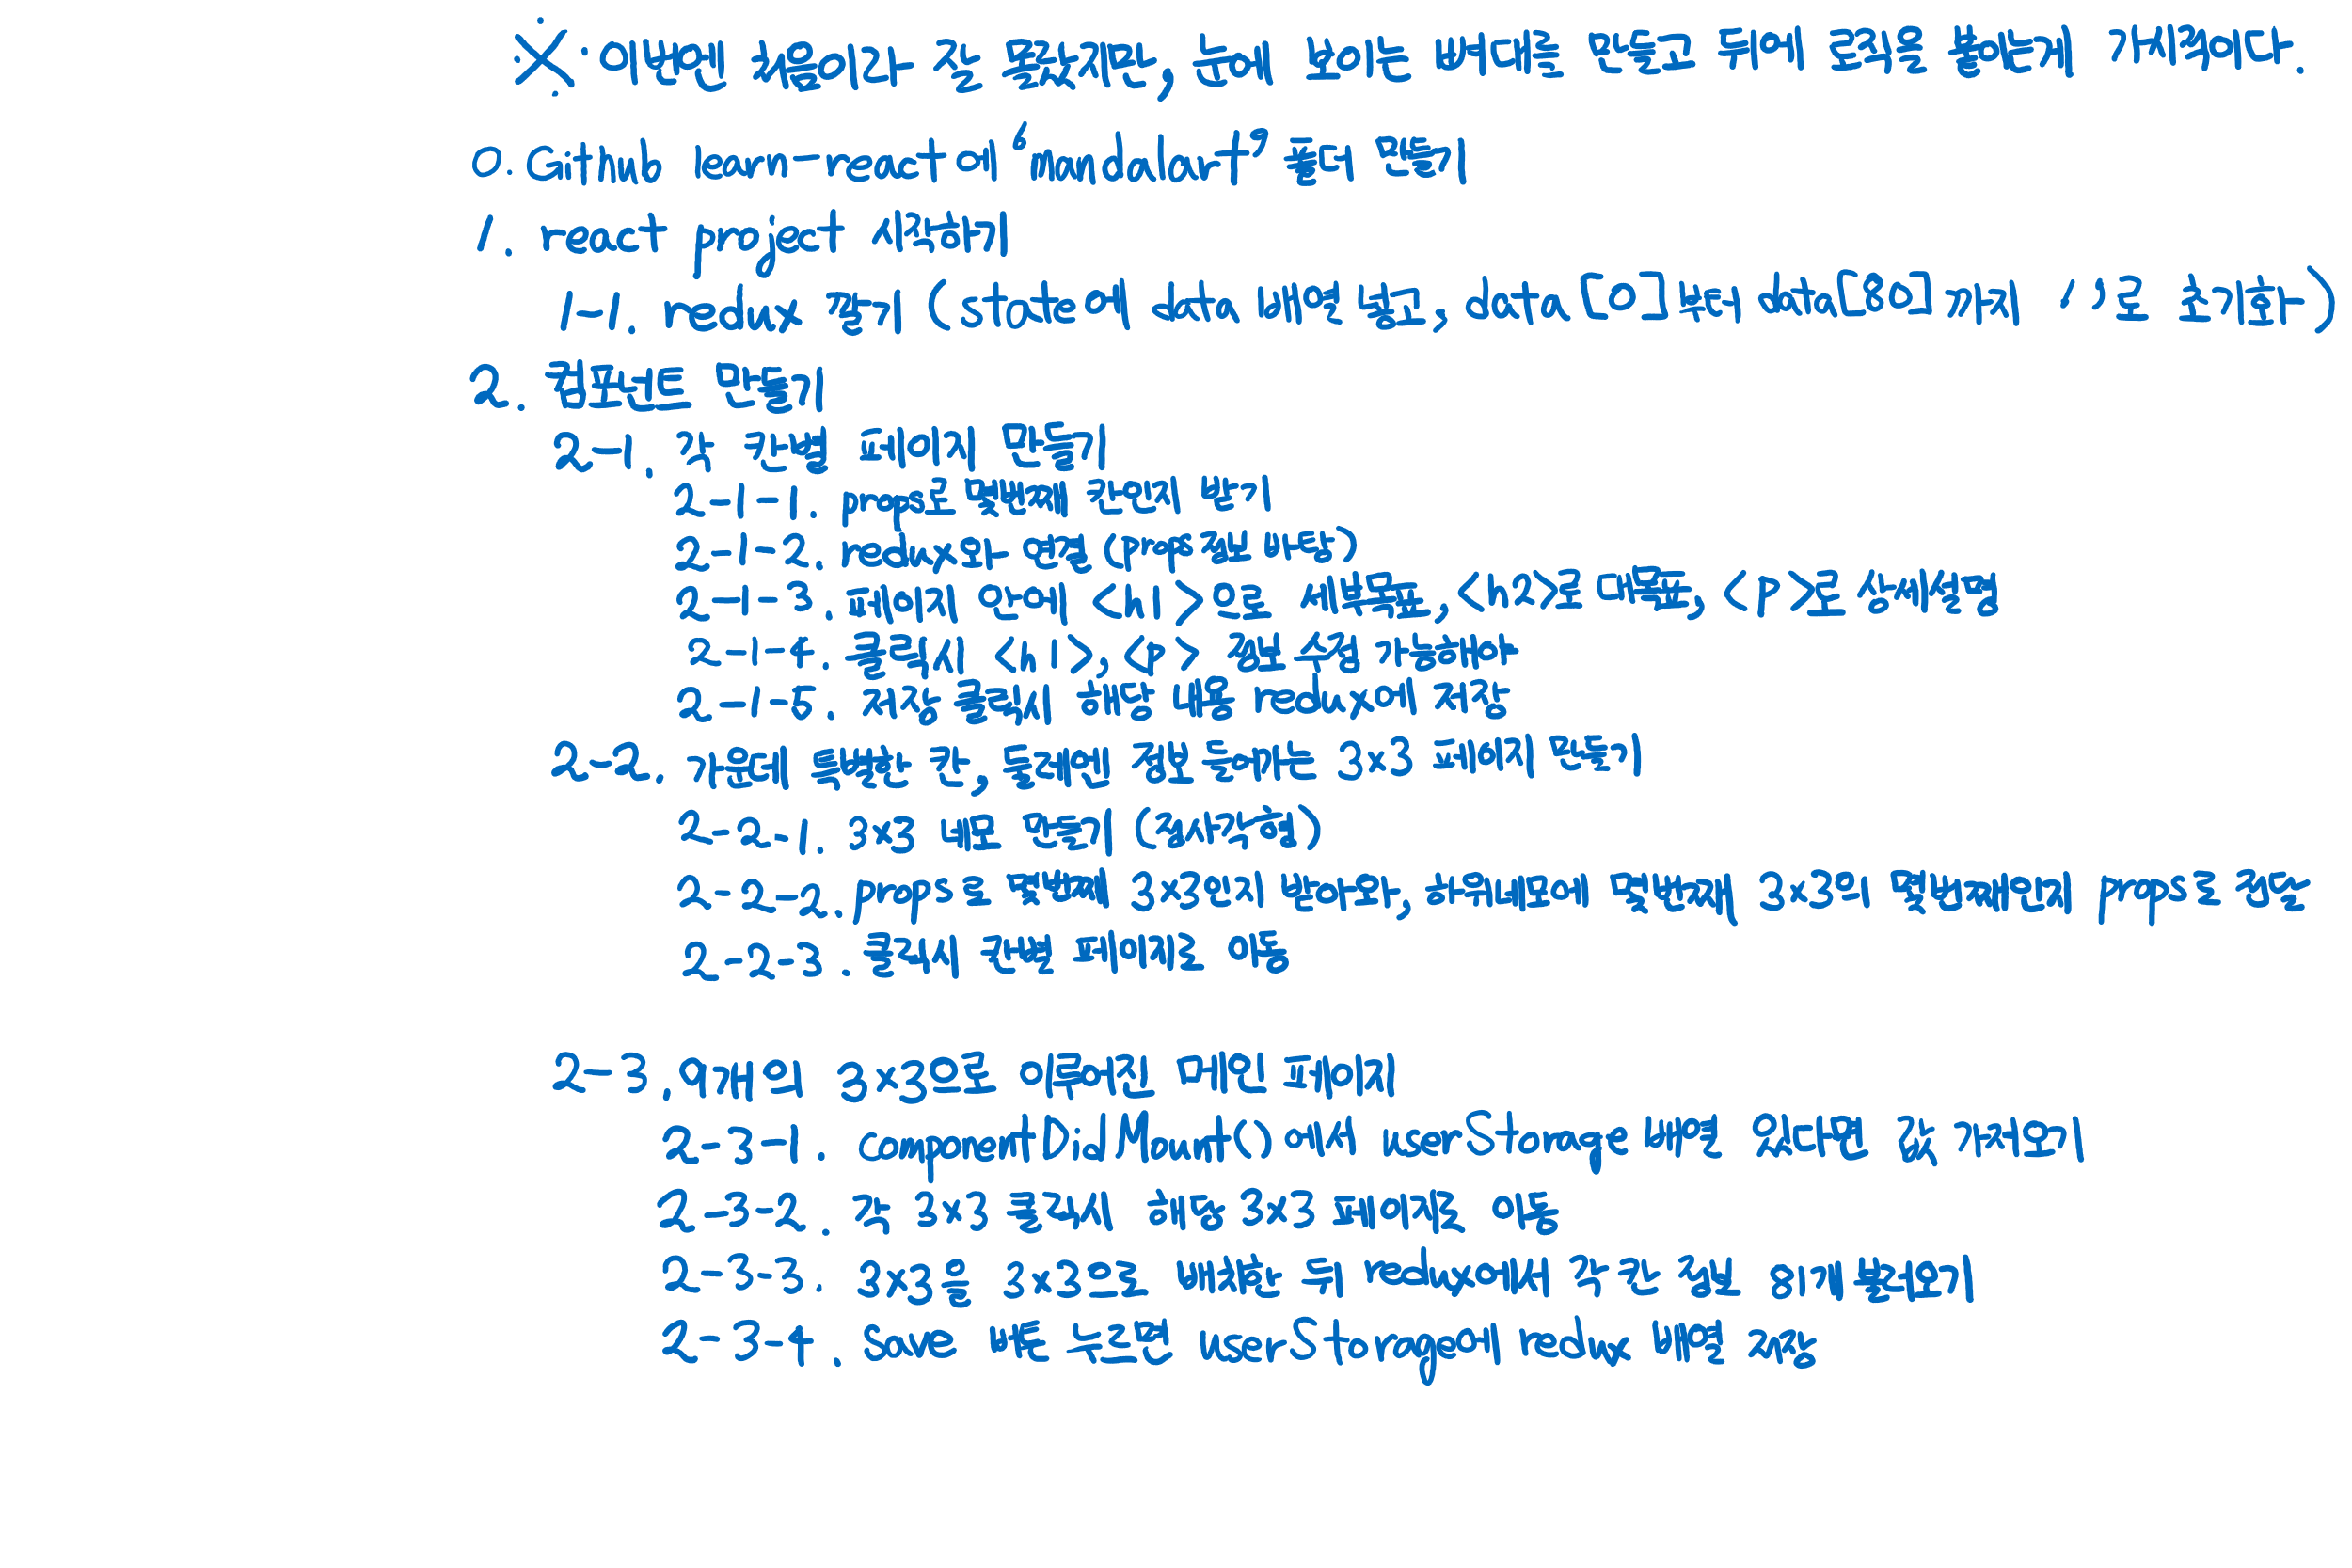 ※. 이번엔 처음이라 잘 몰랐지만, 눈에 보이는 뼈대를 만들고 뒤에 로직을 붙이는게 개쩍이다.
0. Github learn-react에 'mandalart' 폴더 만들기
1. react project 시작하기
1-1. redux 깔기 (state에 data 배열 넣고, data[0]부터 data[80]까지 ''로 초기화)
2. 컴포넌트 만들기
2-1. 각 칸별 페이지 만들기
2-1-1. props로 몇번째 칸인지 받기
2-1-2. redux와 연결 (props 정보 바탕)
2-1-3. 페이지 안에 <h1>으로 세부목표, <h2>로 대목표, <p>로 상세설명
2-1-4. 클릭시 <h1>, <p> 정보 수정 가능해야
2-1-5. 저장 클릭시 해당 내용 redux에 저장
2-2. 가운데 특별한 칸, 둘레엔 정보 들어가는 3x3 페이지 만들기
2-2-1. 3x3 네모 만들기 (정사각형)
2-2-2. props로 몇번째 3x3인지 받아와, 하위네모에 몇번째 3x3의 몇번째인지 props로 전달
2-2-3. 클릭시 칸별 페이지로 이동
2-3. 9개의 3x3으로 이루어진 메인 페이지
2-3-1. componentDidMount()에서 userStorage 배열 있다면 값 가져오기
2-3-2. 각 3x3 클릭시 해당 3x3 페이지로 이동
2-3-3. 3x3을 3x3으로 배치한 뒤 redux에서 각 칸 정보 81개 불러오기
2-3-4. save 버튼 누르면 userStorage에 redux 배열 저장